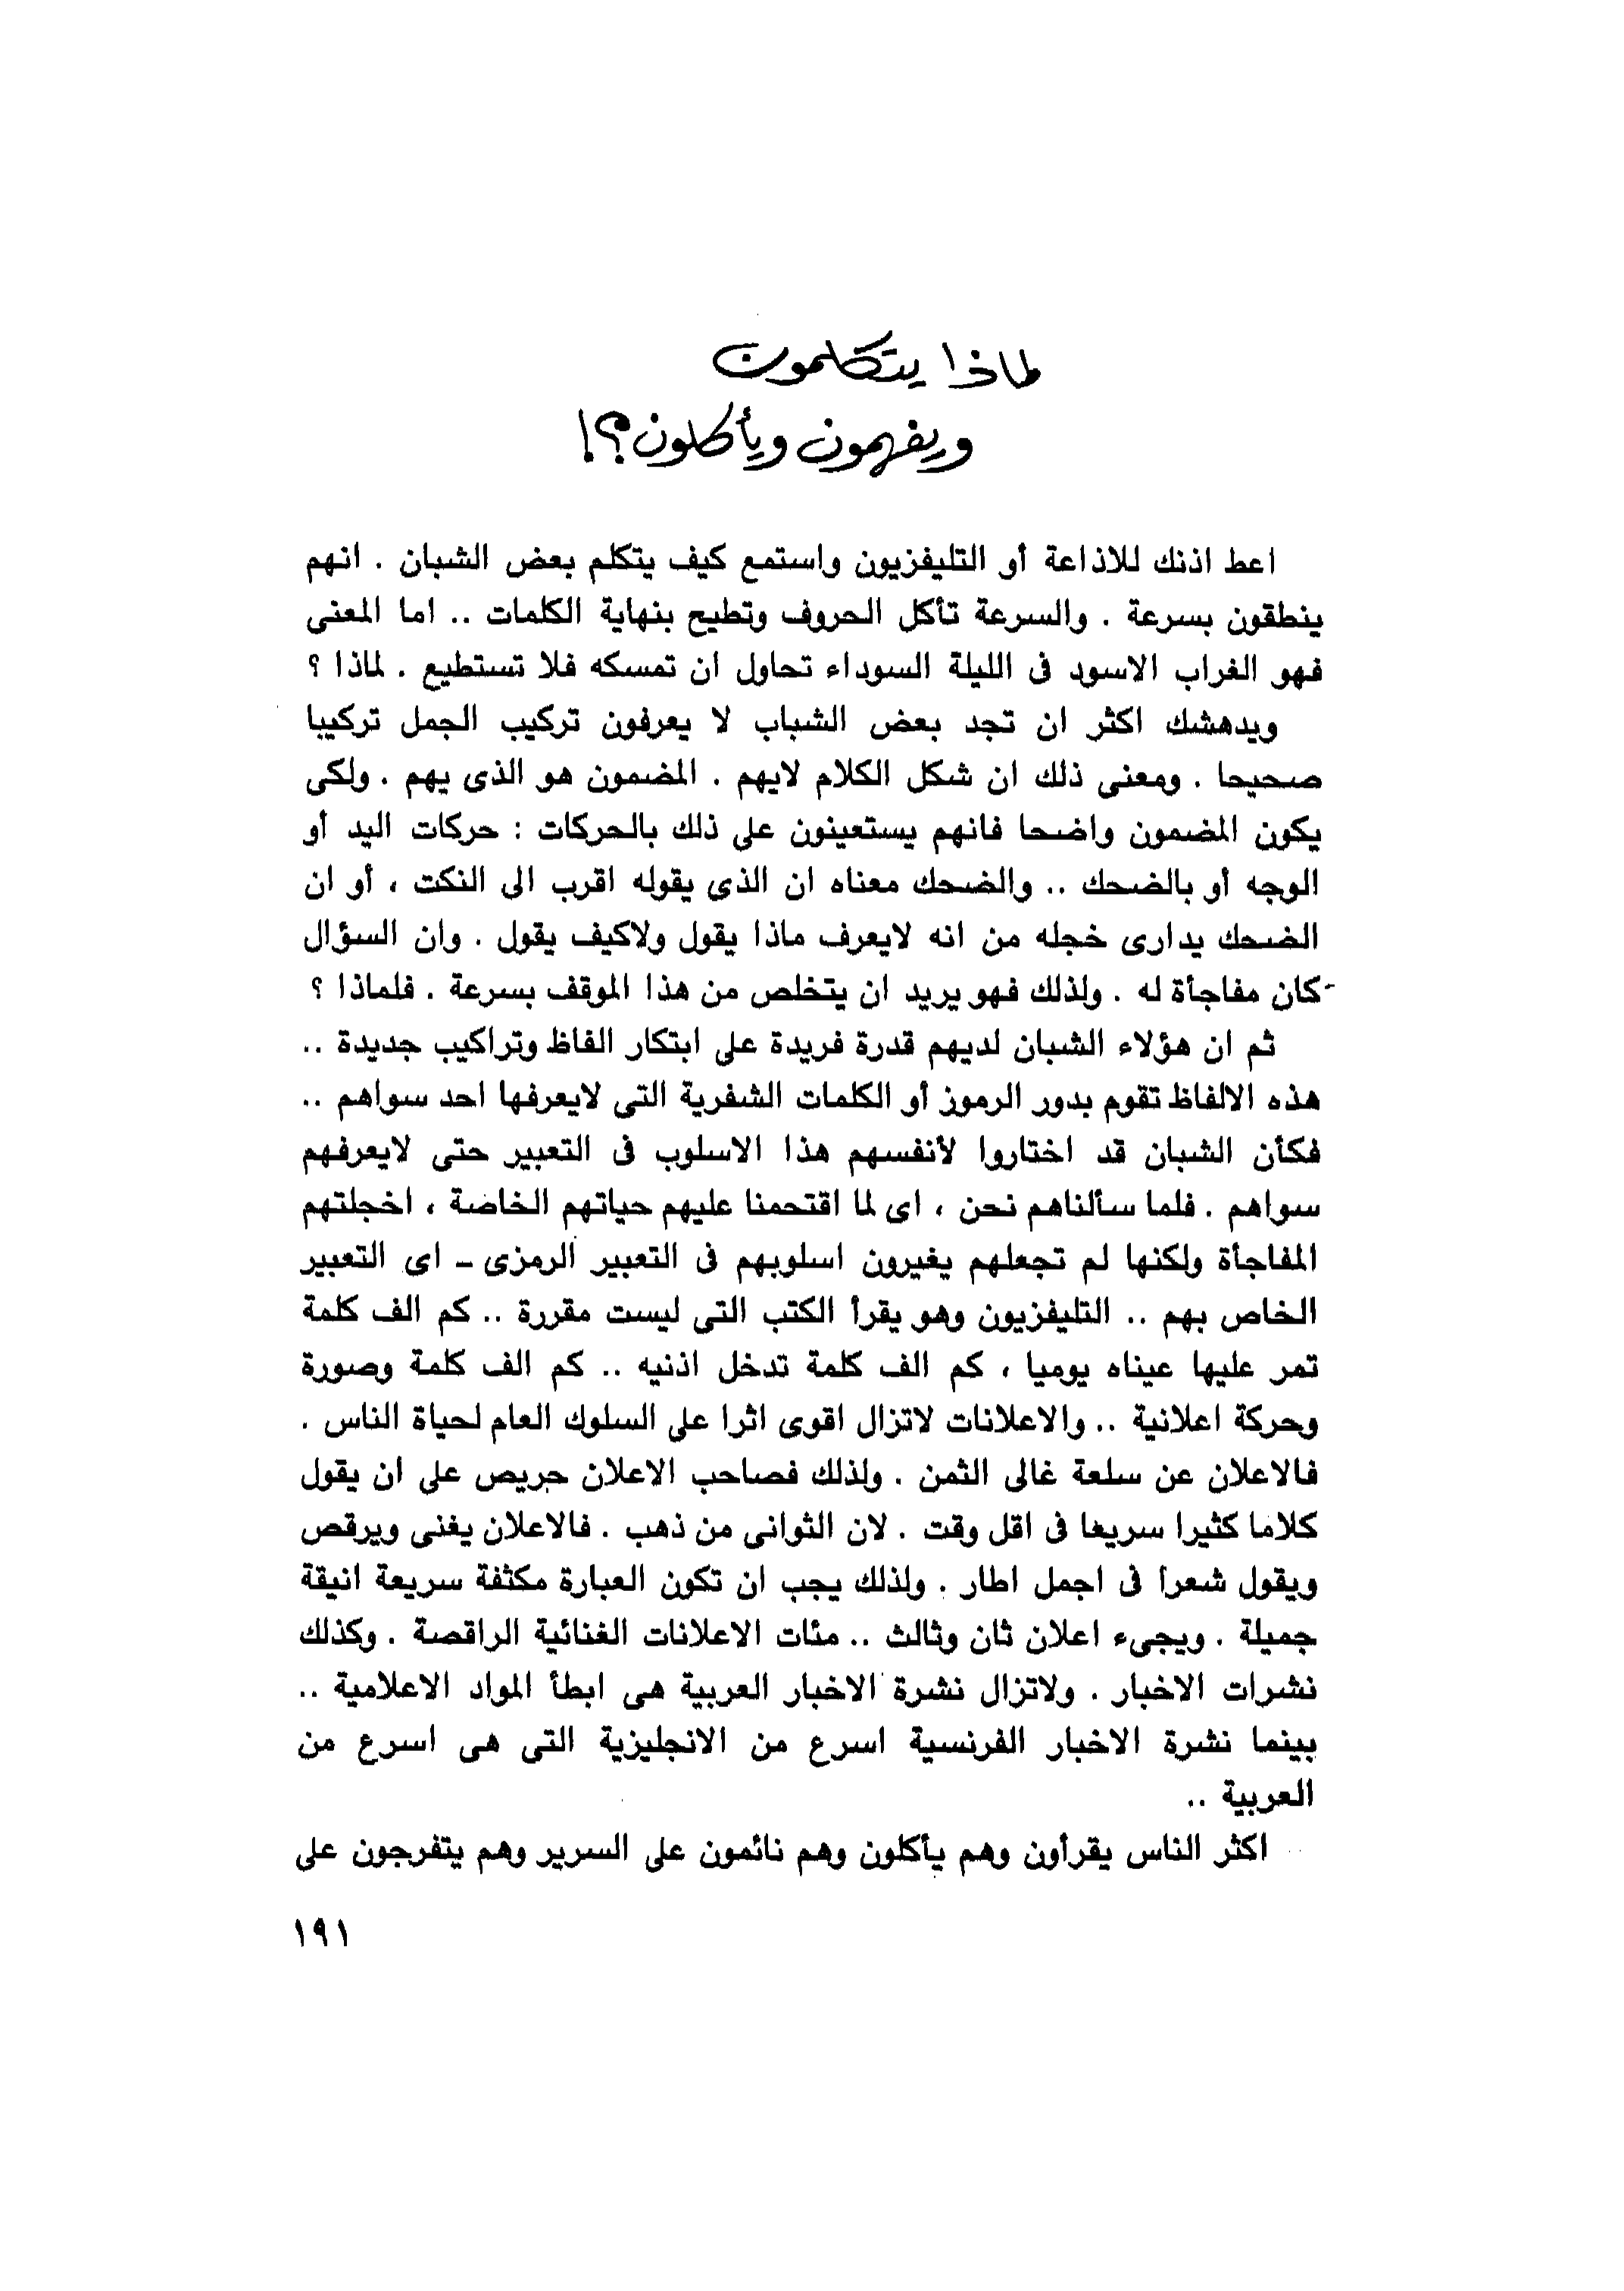 لماذا يتكلمون
ويفهمون ويأكلون؟!
اعط اذنك للاذاعة أو التليفزيون واستمع كيف يتكلم بعض الشبان . انهم
ينطقون بسرعة . والسرعة تأكل الحروف وتطيح بنهاية الكلمات .. اما المعنى
فهو الغراب الاسود فى الليلة السوداء تحاول ان تمسكه فلا تستطيع . لماذا ؟
ويدهشك اكثر ان تجد بعض الشباب لا يعرفون تركيب الجمل تركيبا
صحيحا . ومعنى ذلك ان شكل الكلام لايهم . المضمون هو الذى يهم . ولكى
يكون المضمون واضحا فانهم يستعينون على ذلك بالحركات : حركات اليد أو
الوجه أو بالضحك .. والضحك معناه ان الذى يقوله اقرب الى النكت ، أو ان
الضحك يدارى خجله من انه لايعرف ماذا يقول ولاكيف يقول . وان السؤال
كان مفاجأة له . ولذلك فهو يريد ان يتخلص من هذا الموقف بسرعة . فلماذا ؟
ثم ان هؤلاء الشبان لديهم قدرة فريدة على ابتكار الفاظ وتراكيب جديدة ..
هذه الالفاظ تقوم بدور الرموز أو الكلمات الشفرية التى لايعرفها احد سواهم ..
فكأن الشبان قد اختاروا لأنفسهم هذا الاسلوب فى التعبير حتى لايعرفهم
سواهم . فلما سألناهم نحن ، اى لما اقتحمنا عليهم حياتهم الخاصة ، اخجلتهم
المفاجأة ولكنها لم تجعلهم يغيرون اسلوبهم فى التعبير الرمزى – اى التعبير
الخاص بهم .. التليفزيون وهو يقرأ الكتب التى ليست مقررة .. كم الف كلمة
تمر عليها عيناه يوميا ، كم الف كلمة تدخل اذنيه .. كم الف كلمة وصورة
وحركة اعلانية .. والاعلانات لاتزال اقوى اثرا على السلوك العام لحياة الناس .
فالاعلان عن سلعة غالى الثمن . ولذلك فصاحب الاعلان حريص على ان يقول
كلاما كثيرا سريعا فى اقل وقت . لان الثوانى من ذهب . فالاعلان يغنى ويرقص
ويقول شعرا فى اجمل اطار . ولذلك يجب ان تكون العبارة مكثفة سريعة انيقة
جميلة . ويجىء اعلان ثان وثالث .. مئات الاعلانات الغنائية الراقصة . وكذلك
نشرات الاخبار . ولاتزال نشرة الاخبار العربية هى ابطأ المواد الاعلامية ..
بينما نشرة الاخبار الفرنسية اسرع من الانجليزية التى هى اسرع من
العربية ..
اكثر الناس يقرأون وهم يأكلون وهم نائمون على السرير وهم يتفرجون على
١٩١